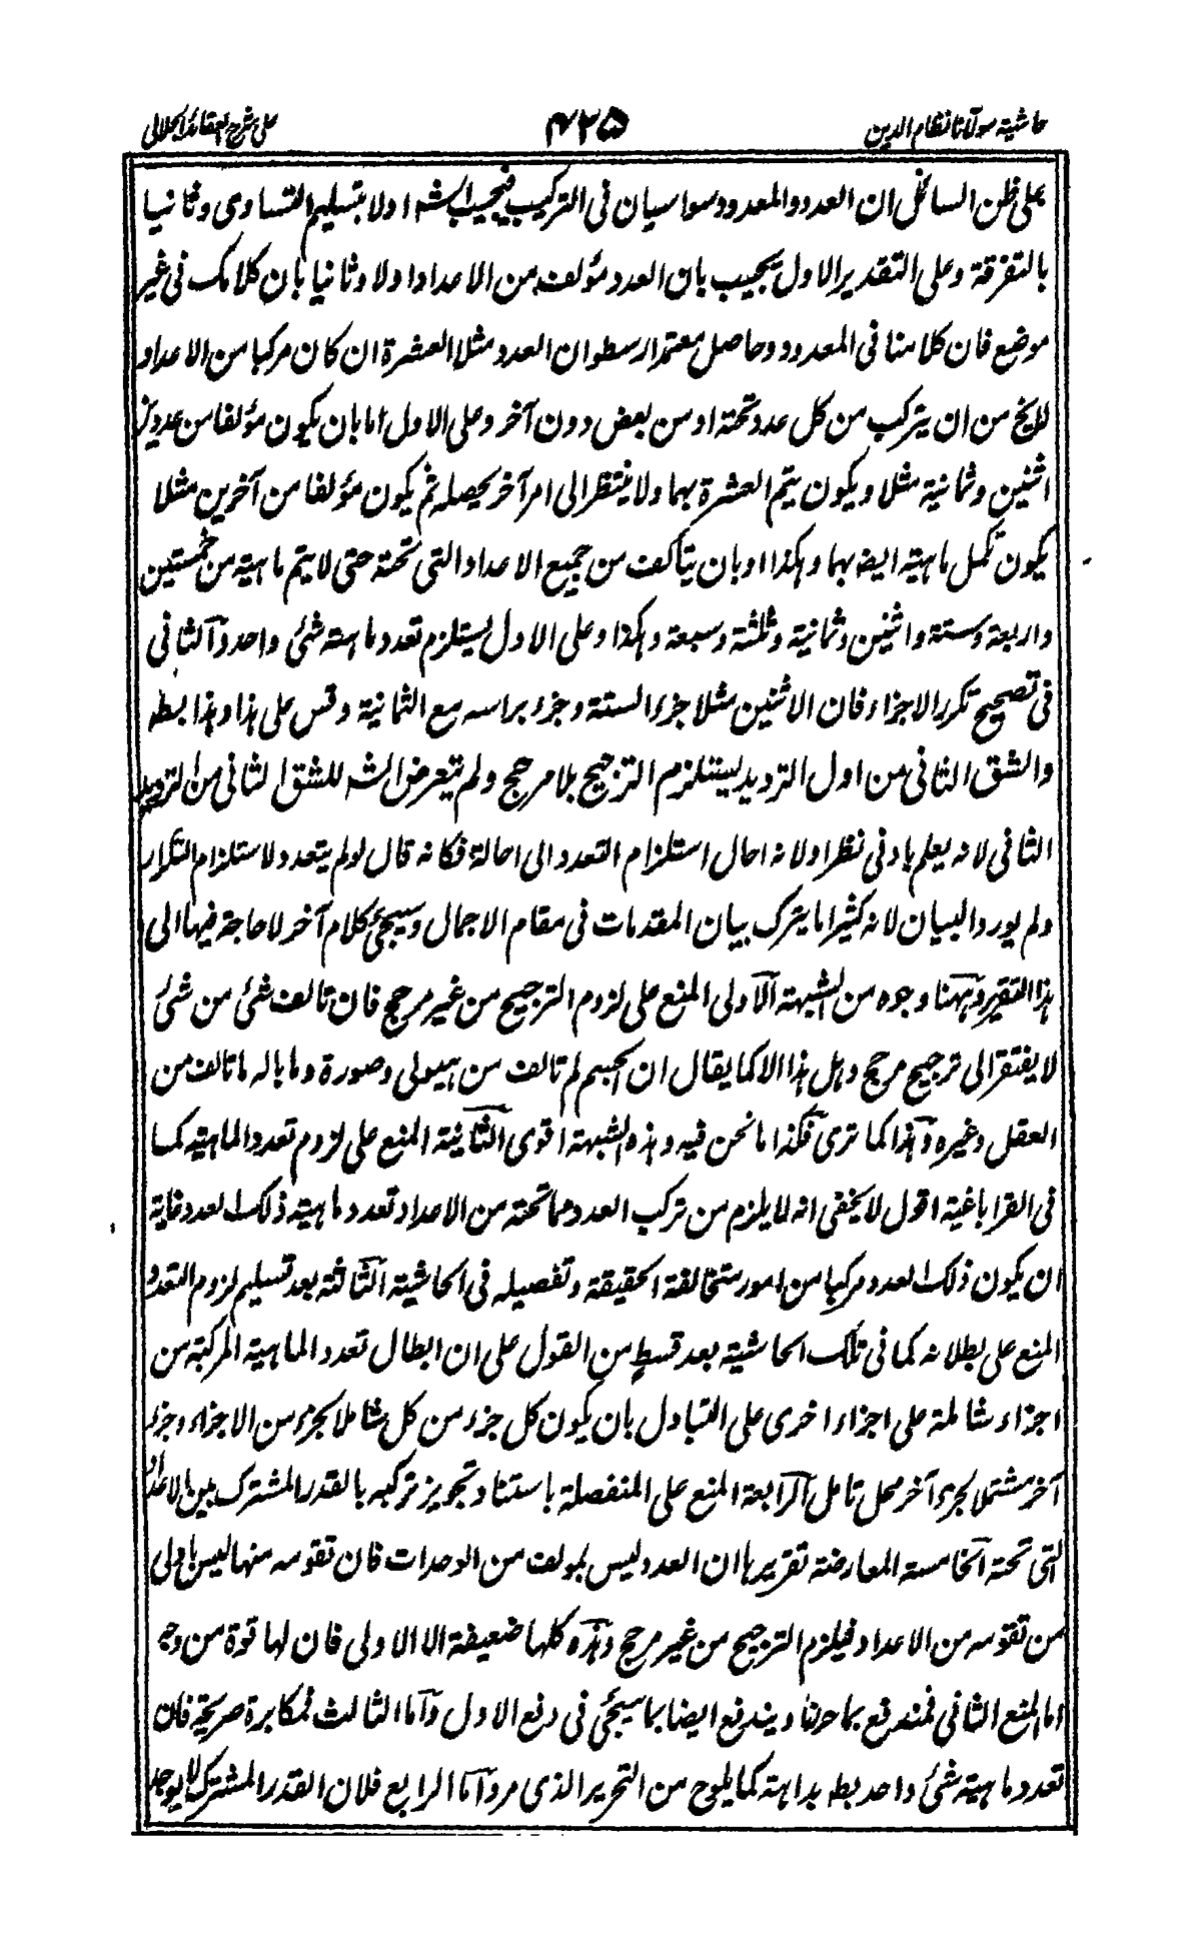 حاشية مولانا نظام الدين ۴۲۵ على شرح العقائد الجلالى
على ظن السائل ان العدد والمعدود سواسيان فى التركيب فيجيب الشه اولا بتسليم التساوى وثانيا
بالتفرقة وعلى التقدير الاول يجيب بان العدد مؤلف من الاعداد اولا وثانيا بان كلامك فى غير
موضع فان كلامنا فى المعدود وحاصل معتمد ارسطو ان العدد مثلا العشرة ان كان مركبا من الاعداد
لايخ من ان يتركب من كل عدد تحته او من بعض دون آخر وعلى الاول اما بان يكون مؤلفا من عددين
اثنين وثمانية مثلا ويكون يتم العشرة بهما ولا ينتظر الى امر آخر يحصله ثم يكون مؤلفا من آخرين مثلا
يكون تكمل ماهيته ايضه بهما وهكذا او بان يتألف من جميع الاعداد التى تحته حتى لا يتم ماهيته من خمستين
واربعة وستة واثنين وثمانية وثلثة وسبعة وهكذا وعلى الاول يستلزم تعدد ماهية شئ واحد والثانى
فى تصحيح تكرر الاجزاء فان الاثنين مثلا جزء الستة وجزء براسه مع الثمانية وقس على هذا وهذا بطه
والشق الثانى من اول الترديد يستلزم الترجيح بلا مرجح ولم يتعرض الشه للشق الثانى من الترديد
الثانى لانه يعلم بادنى نظر او لانه احال استلزام التعدد الى احالة فكانه قال لو لم يتعدد لاستلزام التكرار
ولم يورد البيان لانه كثيرا ما يترك بيان المقدمات فى مقام الاجمال وسيجئ كلام آخر لا حاجة فيها الى
هذا التقرير وههنا وجوه من الشبهة الاولى المنع على لزوم الترجيح من غير مرجح فان تالف شئ من شئ
لا يفتقر الى ترجيح مرجح وهل هذا الا كما يقال ان الجسم لم تالف من هيولى وصورة وما باله ما تالف من
العقل وغيره وهذا كما ترى فكذا ما نحن فيه وهذه الشبهة اقوى الثانية المنع على لزوم تعدد الماهية كما
فى القراباغية اقول لا يخفى انه لا يلزم من تركب العدد مما تحته من الاعداد تعدد ماهية ذلك العدد غاية
ان يكون ذلك العدد مركبا من امور متخالفة الحقيقة وتفصيله فى الحاشية الثالثة بعد تسليم لزوم التعدد
المنع على بطلانه كما فى تلك الحاشية بعد قسط من القول على ان ابطال تعدد الماهية المركبة من
اجزاء شاملة على اجزاء اخرى على التبادل بان يكون كل جزء من كل شاملا لجزء من الاجزاء وجزء
آخر مشتملا لجزء آخر محل تامل الرابعة المنع على المنفصلة باستناد تجويز تركبه بالقدر المشترك بين الاعداد
التى تحته الخامسة المعارضة تقريرها ان العدد ليس بمولف من الوحدات فان تقومه منها ليس باولى
من تقومه من الاعداد فيلزم الترجيح من غير مرجح وهذه كلها ضعيفة الا الاولى فان لها قوة من وجه
اما المنع الثانى فمندفع بما حررنا ويندفع ايضا بما سيجئ فى دفع الاول واما الثالث فمكابرة صريحة فان
تعدد ماهية شئ واحد بطه بداهة كما يلوح من التحرير الذى مر واما الرابع فلان القدر المشترك لا يوجد